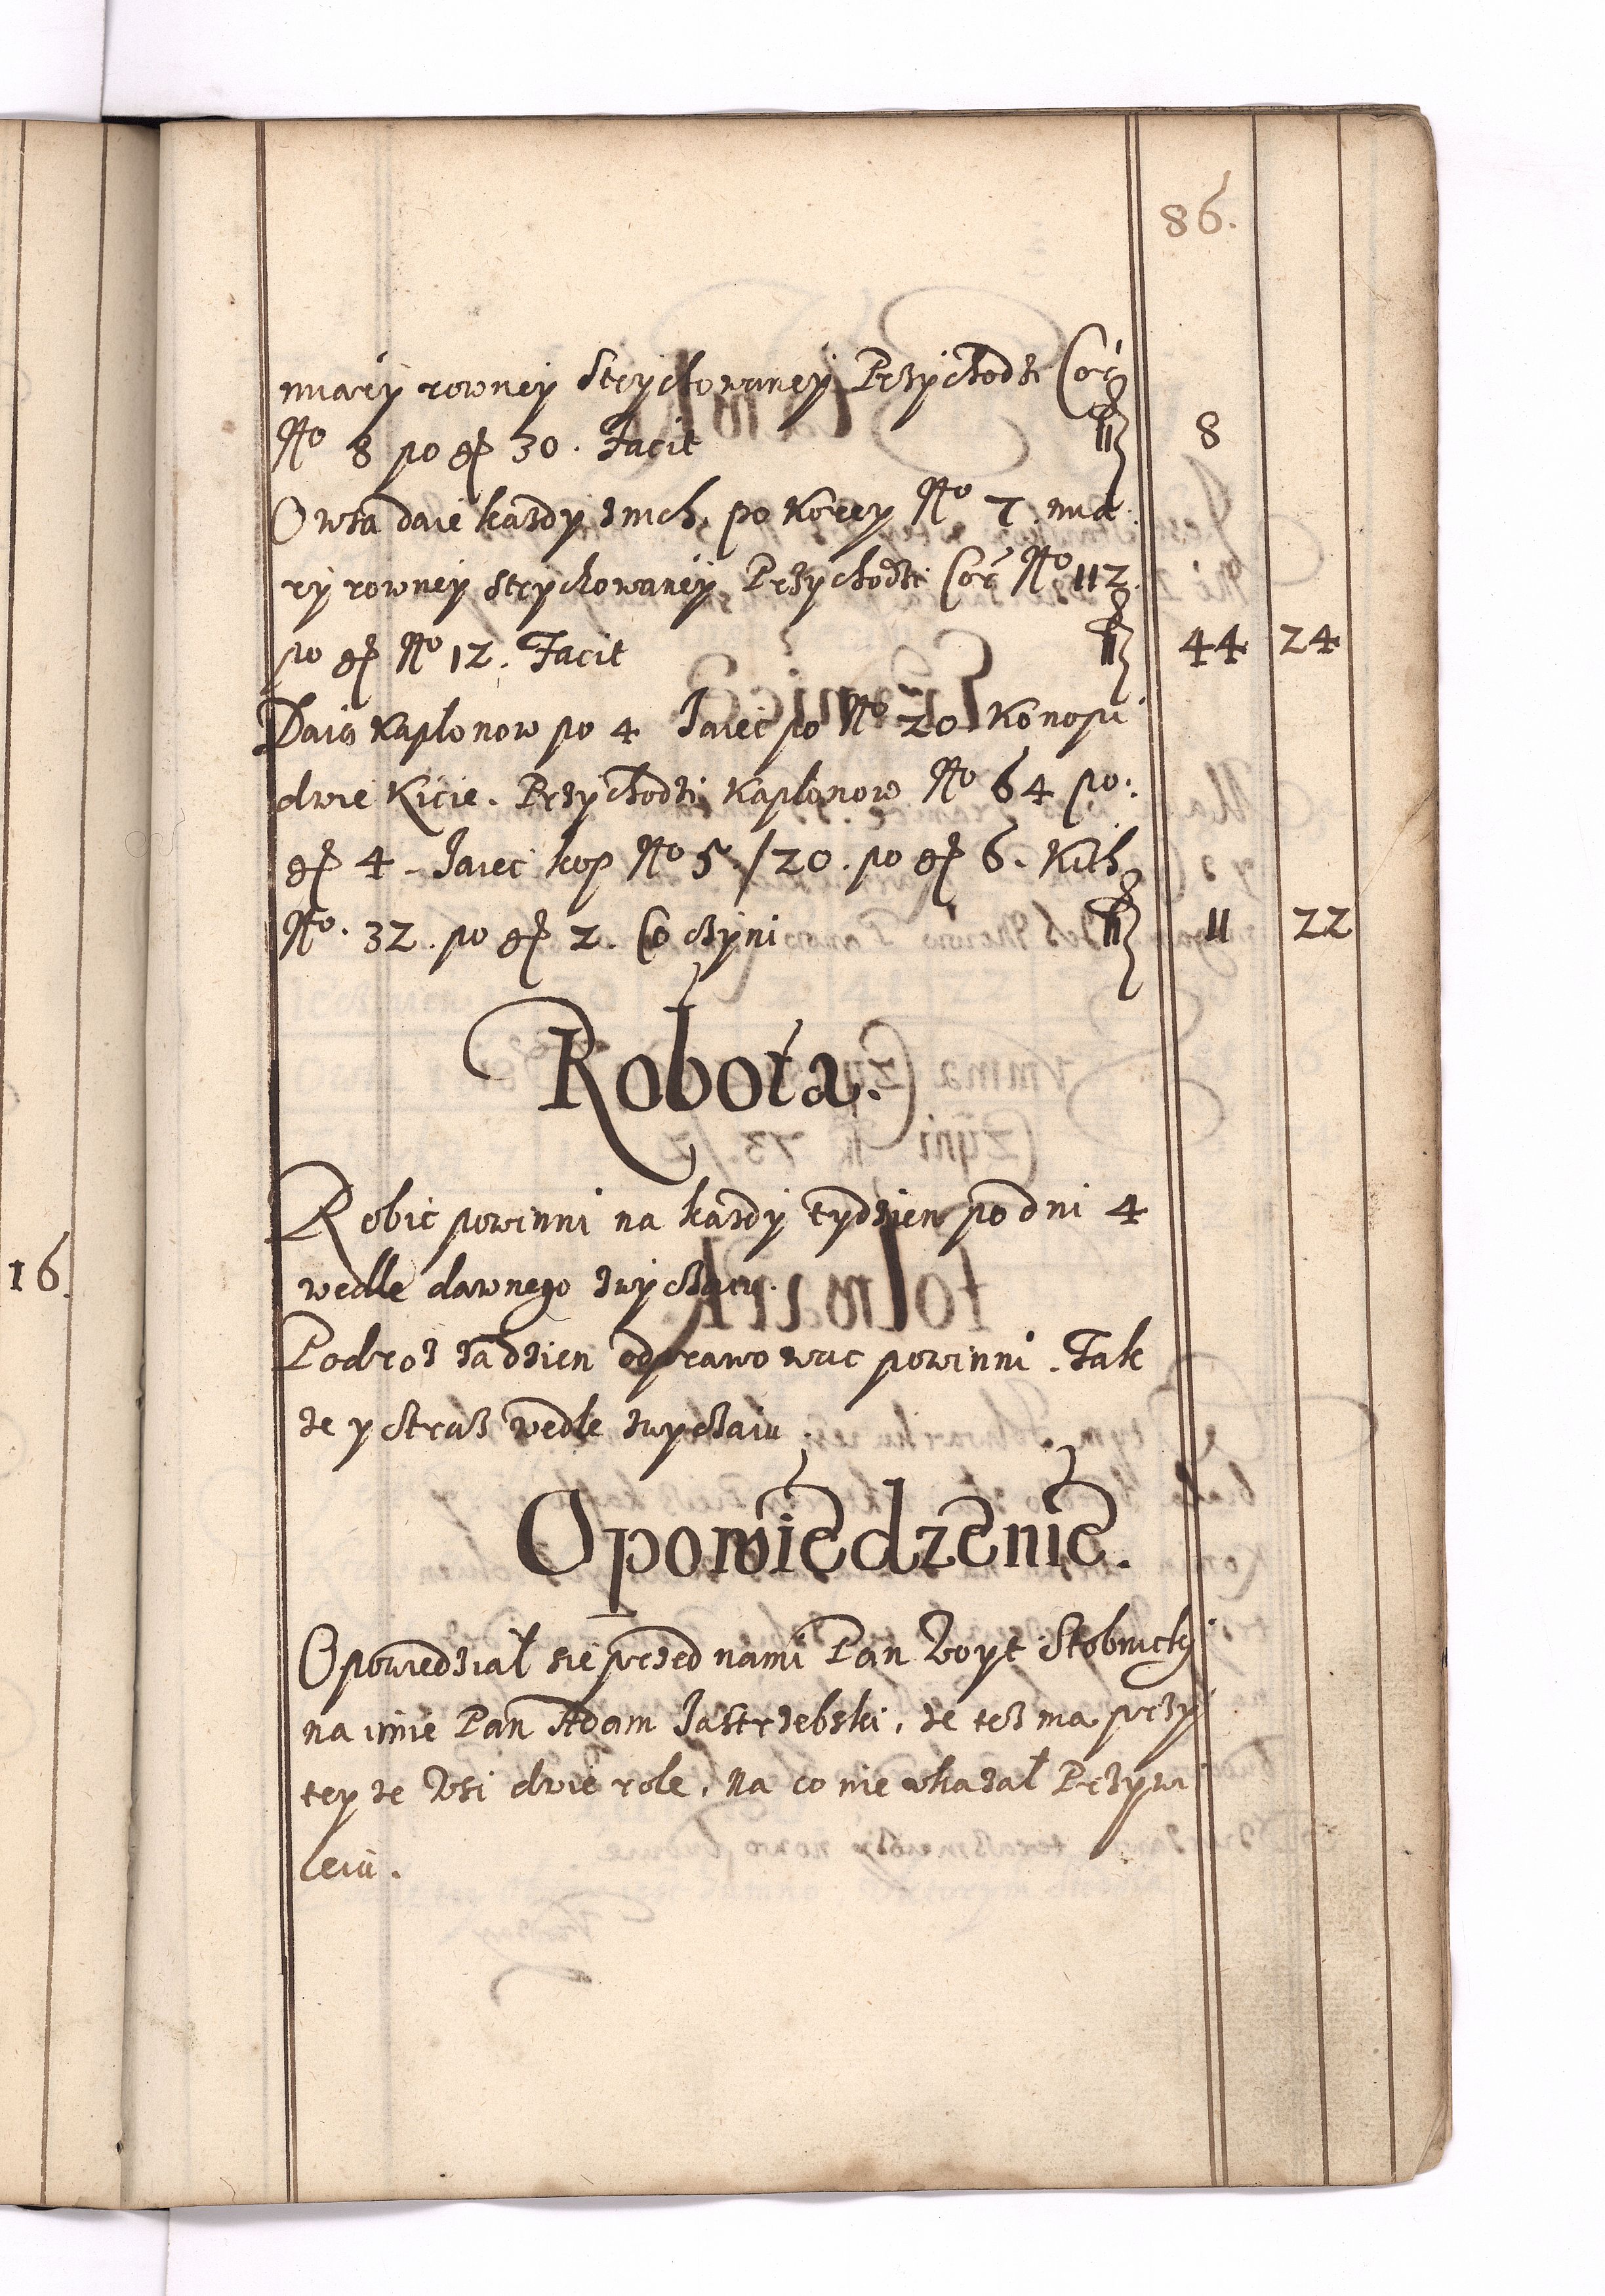 86.
miary rowney strychowaney Przychodzi Cor
No 8 po g 30. Facit 8
Owsa daie kazdy znich, po korcy No 7. mia
ry rowney strychowaney Przychodzi Cor No 112.
po g No 12. Facit 44 24
Daią kaplonow po 4 Jaiec po No 20 Konopi
dwie Kicie. Przychodzi kaplonow No 64 po:
g 4. Jaiec kop No 5./20. po g 6. Kith
No. 32. po g 2. Co czyni 11 22
Robota.
Robic powinni na kazdy tydzien po dni 4
wedle dawnego zwyczaiu.
Podroz za dzien odprawowac powinni. Tak
ze y straz wedle zwyczaiu.
Opowiedzenie.
Opowiedzial sie przed nami Pan Woyt Stobnicky
na imie Pan Adam Jastrzebski, ze tez ma przy
tey ze Wsi dwie role, na co nie ukazal Przywi
leiu.
16.